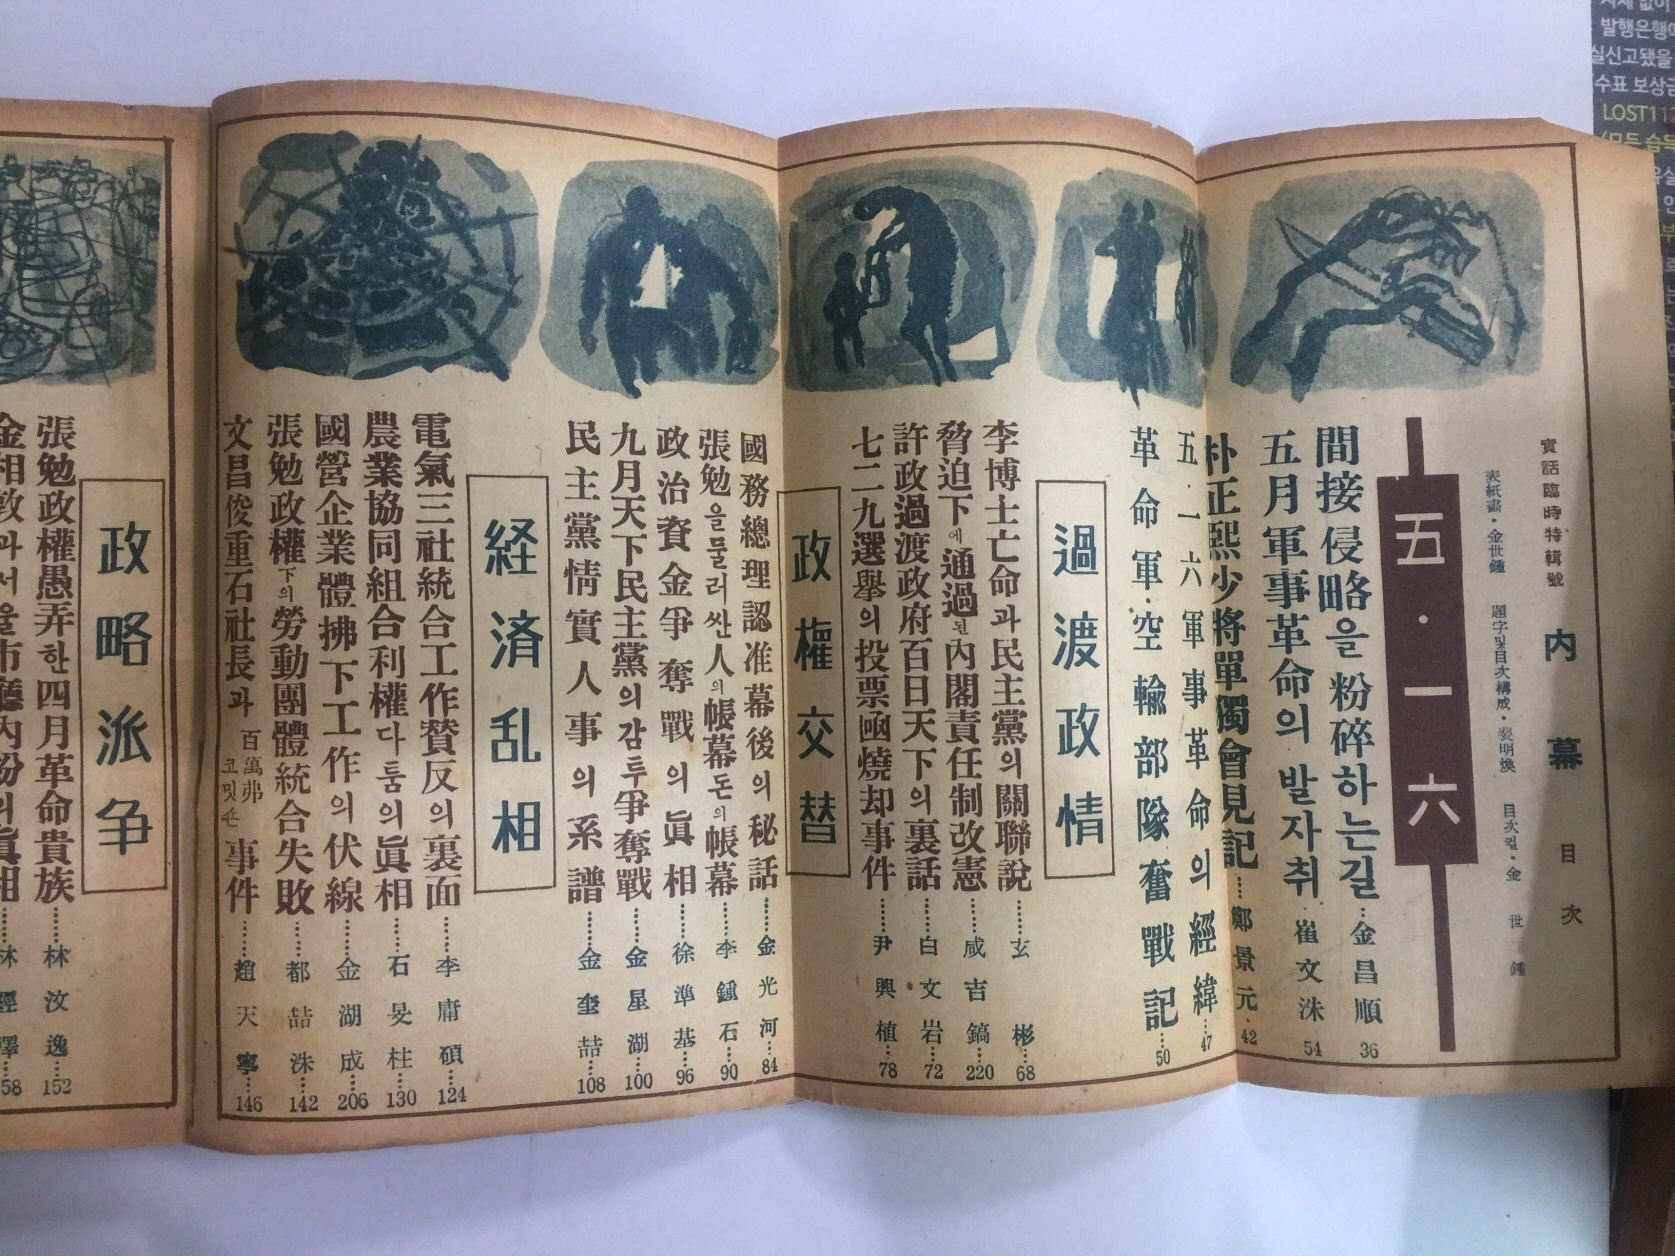 實話臨時特輯號 內幕 目次
表紙畵·金世鍾 題字및目次構成·裴明煥 目次컽·金世鍾
五·一六
間接侵略을粉碎하는길 金昌順 36
五月軍事革命의발자취 崔文洙 54
朴正熙少將單獨會見記 鄭景元 42
五·一六軍事革命의經緯 47
革命軍·空輸部隊奮戰記 50
過渡政情
李博士亡命과民主黨의關聯說 玄彬 68
脅迫下에通過된內閣責任制改憲 咸吉鎬 220
許政過渡政府百日天下의裏話 白文岩 72
七二九選擧의投票凾燒却事件 尹興植 78
政權交替
國務總理認准幕後의秘話 金光河 84
張勉을물러싼人의帳幕돈의帳幕 李鍾石 90
政治資金爭奪戰의眞相 徐準基 96
九月天下民主黨의감투爭奪戰 金星湖 100
民主黨情實人事의系譜 金奎喆 108
経済乱相
電氣三社統合工作贊反의裏面 李庸碩 124
農業協同組合利權다툼의眞相 石旻柱 130
國營企業體拂下工作의伏線 金湖成 206
張勉政權下의勞動團體統合失敗 都喆洙 142
文昌俊重石社長과百萬弗코밋숀事件 趙天寧 146
政略派争
張勉政權愚弄한四月革命貴族 林汶逸 152
金相敦과서울市廳內紛의眞相 林經澤 58
발행은행
수표 보상금
LOST112